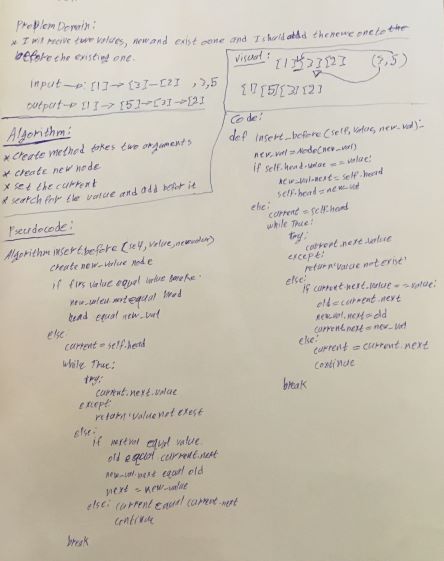 Problem Domain:
* I will recive two values, new and exist oone and I should add the newe one to the
before the existing one.
input → [1] → [3] – [2] , 3,5
output → [1] → [5] → [3] → [2]
Algorithm:
* create method takes two arguments
* create new node
* set the current
* search for the value and add befor it
Pseudocode:
Algorithm insert_before (self, value, new value)
create new_value node
if firs value equal value
new_value.next equal head
head equal new_val
else:
current = self.head
while True:
try:
current.next.value
except:
return 'value not exest
else:
if nextval equal value
old equal current.next
new_val.next equal old
next = new_value
else: current equal current.next
continue
break
visual:
[1] [3] [2] (3,5)
[1] [5] [3] [2]
Code:
def insert_before (self, value, new_val):
new_val = Node(new_val)
if self.head.value == value:
new_val.next = self.head
self.head = new_val
else:
current = self.head
while True:
try:
current.next.value
except:
return 'value not exist'
else:
if current.next.value == value:
old = current.next
new_val.next = old
current.next = new_val
else:
current = current.next
continue
break